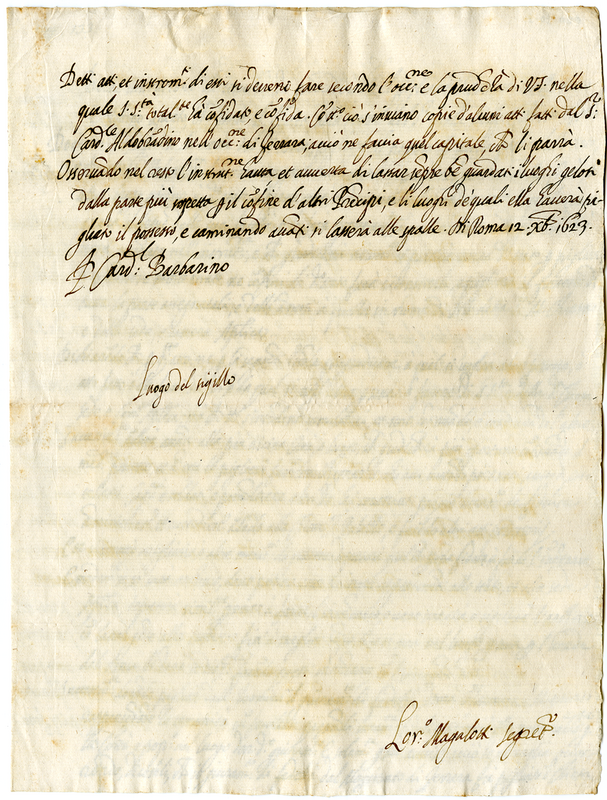 Detti atti, et instrom.ti di essi si devrenò fare secondo l'occ.ne e la prud.za di V.S. nella
quale S. S.tà total.te hà cōfidato, e cōfida. Cō q.to ciò s'inviano copie d'alcuni atti fatti dal S.r
Card.le Aldobrandino nell'occ.ne di Ferrara, acciò ne faccia quel capitale che li parrà.
Osservando nel resto l'instrut.ne havuta et avverta di lassar sēpre bē guardati i luoghi gelosi
dalla parte più sospetta p il cōfine d'altri Prēcipi, e li luoghi de quali ella haverà pi-
gliato il possesso, e caminando avāti si lasserà alle spalle. Di Roma 12. Xbre 1623.
Il Card.l Barbarino
Luogo del sigillo
Lor.o Magalotti Segret.o